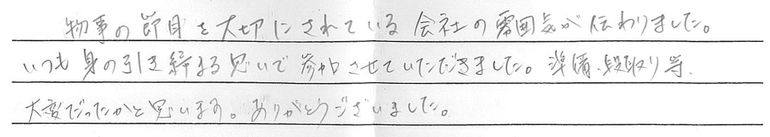 物事の節目を大切にされている会社の雰囲気が伝わりました。
いつも身の引き締まる思いで参加させていただきました。準備・段取り等、
大変だったかと思います。ありがとうございました。